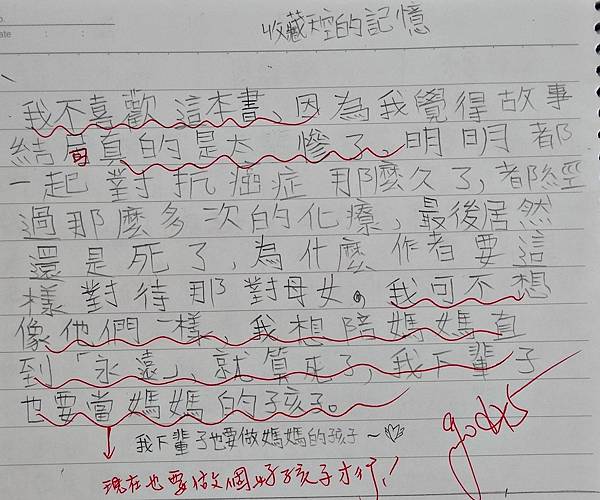 收藏天空的記憶
我不喜歡這本書、因為我覺得故事
結局真的是太慘了,明明都
一起對抗癌症那麼久了,都經
過那麼多次的化療,最後居然
還是死了,為什麼作者要這
樣對待那對母女。我可不想
像他們一樣,我想陪媽媽直
到「永遠」、就算死了,我下輩子
也要當媽媽的孩子。
我下輩子也要做媽媽的孩子~
現在也要做個好孩子才行!
godx5